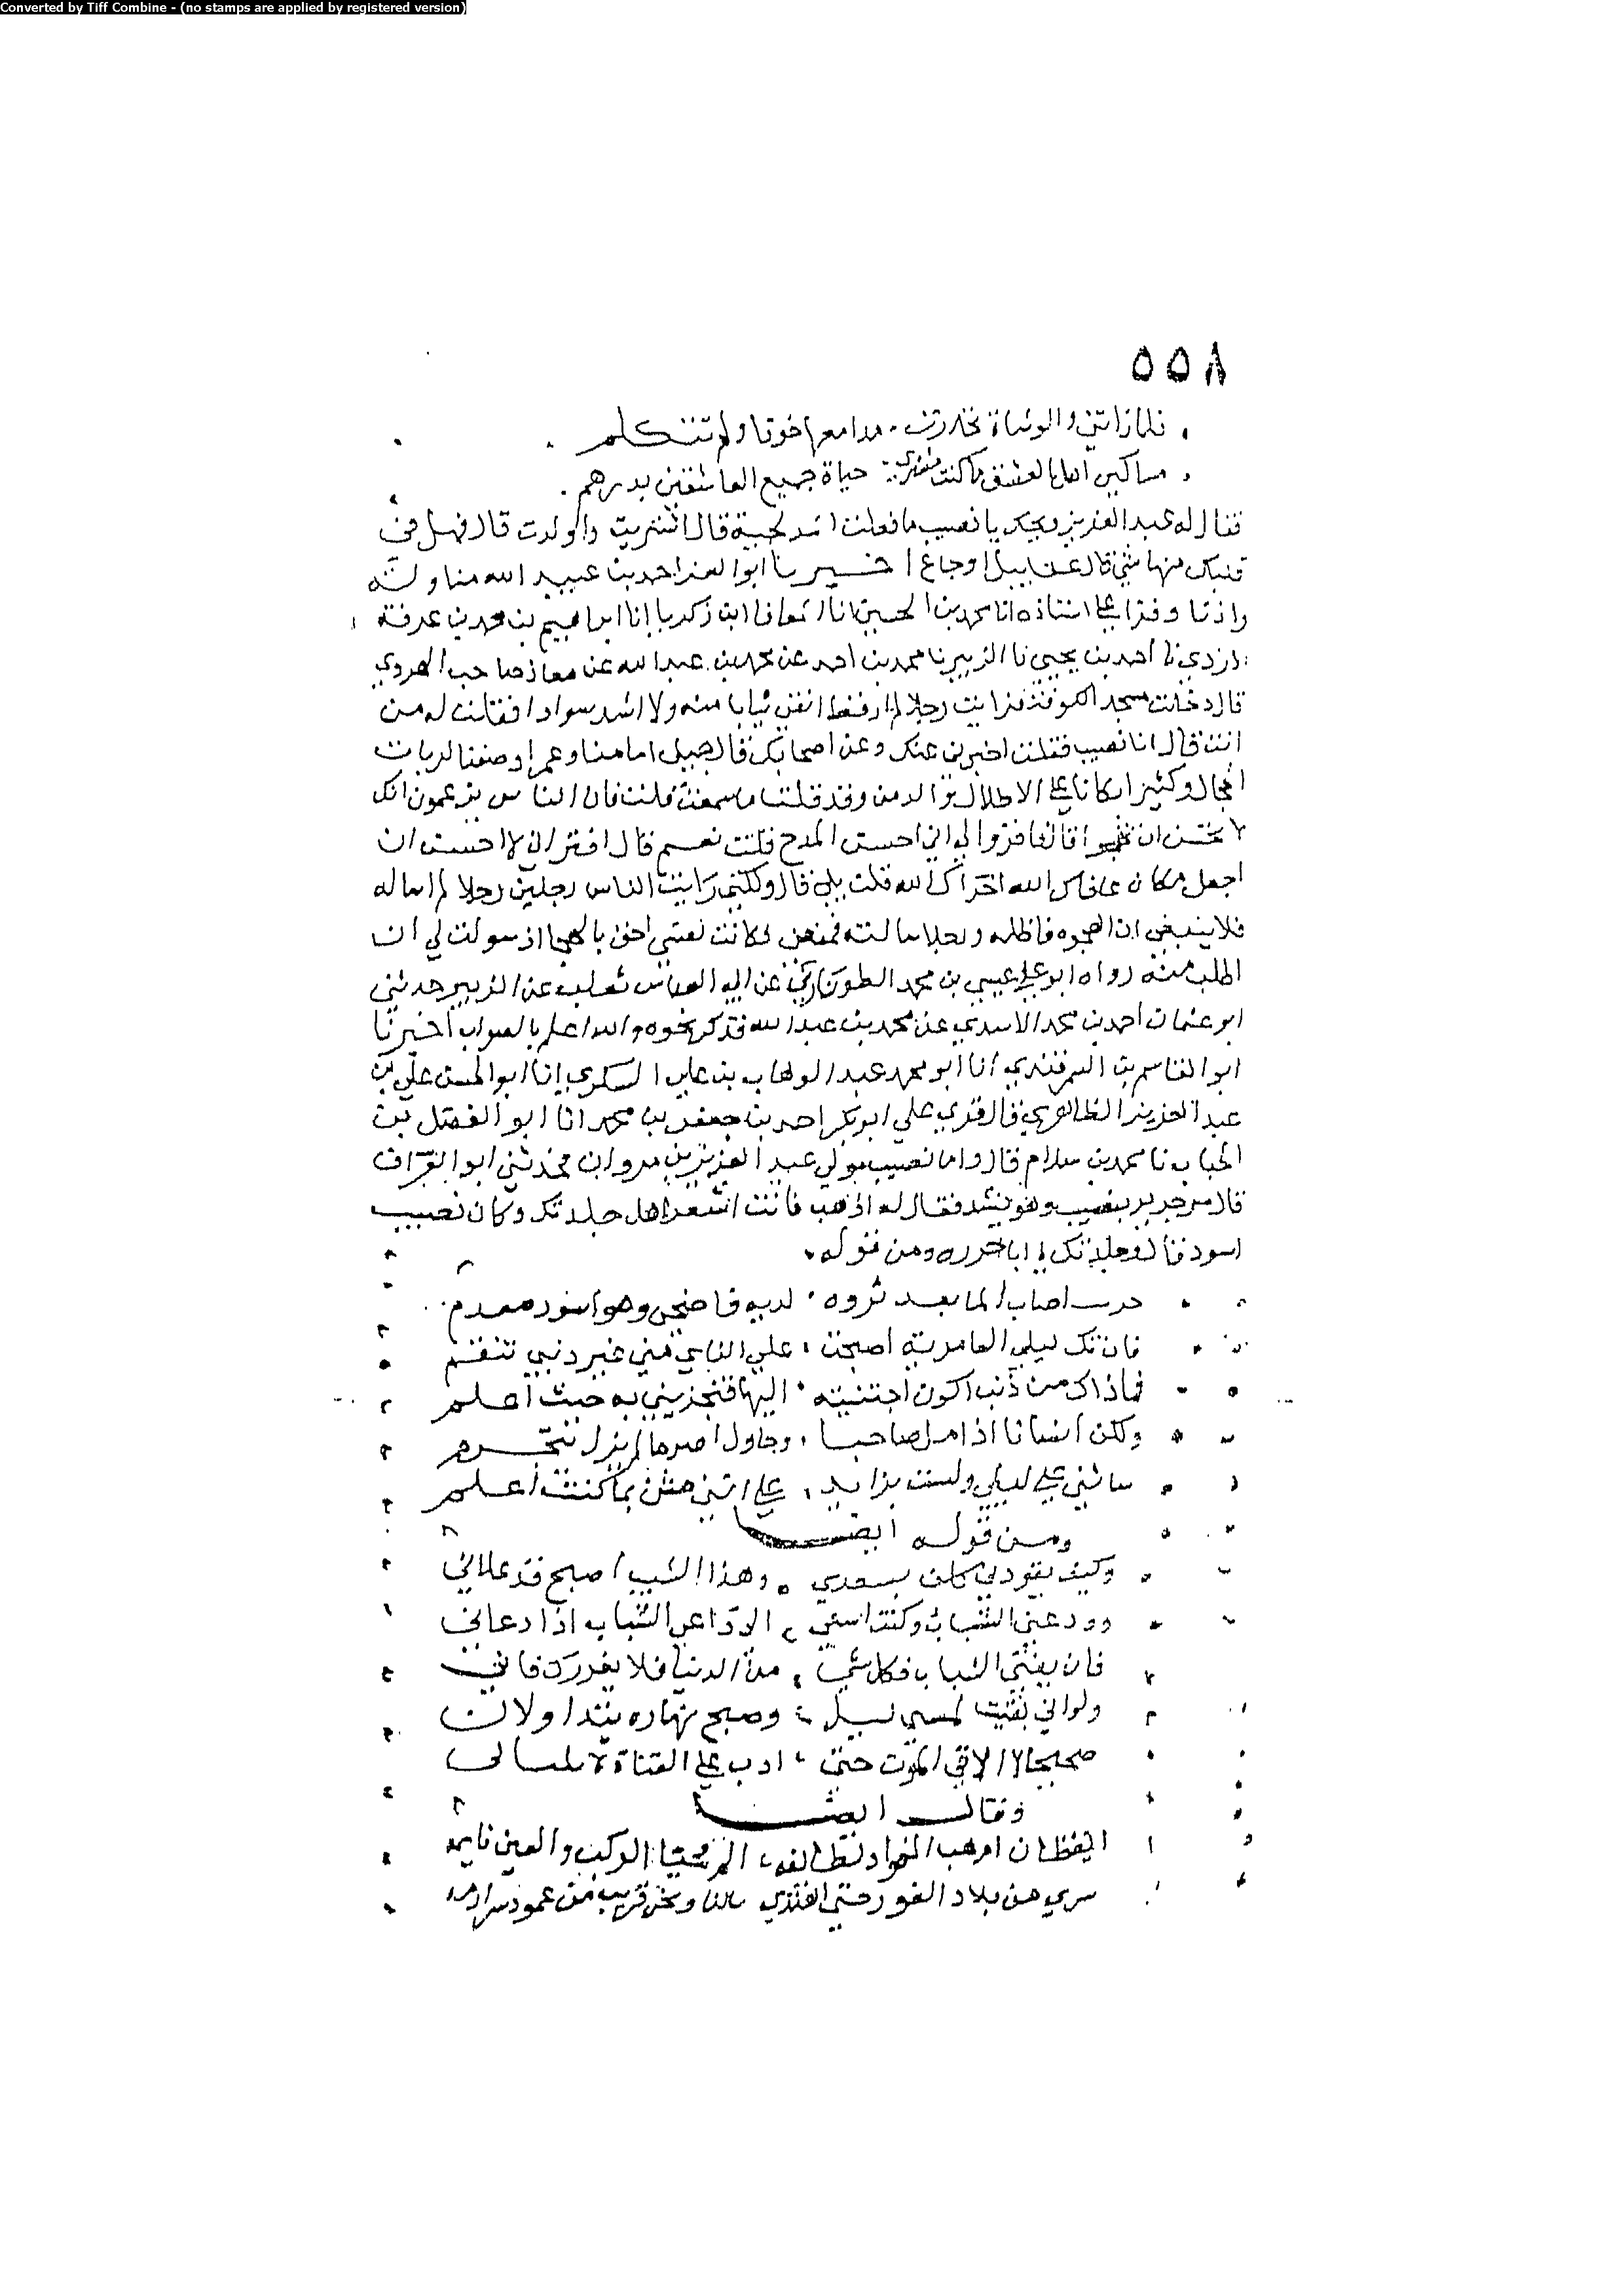 Converted by Tiff Combine - (no stamps are applied by registered version)
٥٥٨
فلما راتني والوشاة تحدرت مدامعها خوفا ولم تتكلم
مساكين اهل العشق ما كنت مشتري حياة جميع العاشقين بدرهم
فقال له عبد العزيز ويحك يا نصيب ما فعلت قال اشتريت واولدت قال فهل في
قلبك منها شي قال اوجاع اخبرنا ابو العز احمد بن عبيد الله مناولة
واذنا وقرا علي اسناده انا محمد بن الحسين انا المعافا ابن زكريا انا ابراهيم بن محمد بن عرفة
الازدي نا احمد بن يحيي نا الزبير نا محمد بن احمد عن محمد بن عبد الله عن معاذ صاحب الهروي
قال دخلت مسجد الكوفة فرايت رجلا لم ار قط انقي ثيابا منه ولا اشد سوادا فقلت له من
انت قال انا نصيب فقلت اخبرني عنك وعن اصحابك قال جميل امامنا وعمر اوصفنا لربات
الحجال وكثير ابكانا علي الاطلال والدمن وقد قلت ما سمعت قلت فان الناس يزعمون انك
لا تحسن ان تهجو قال فاقروا لي اني احسن المدح قلت نعم قال افتراني لا احسن ان
اجعل مكان عافاك الله اخزاك الله قلت بلي قال ولكني رايت الناس رجلين رجلا لم اساله
فلا ينبغي ان اهجوه فاظلمه ورجلا سالته فمنعني فكانت نفسي احق بالهجا اذ سولت لي ان
اطلب منه رواه ابو علي عيسي بن محمد الطوماري عن ابي العباس ثعلب عن الزبير حدثني
ابو عثمان احمد بن محمد الاسدي عن محمد بن عبد الله فذكر نحوه والله اعلم بالصواب اخبرنا
ابو القاسم بن السمرقندي انا ابو محمد عبد الوهاب بن علي السكري انا ابو الحسن علي بن
عبد العزيز الطاهري قال قري علي ابو بكر احمد بن جعفر بن محمد انا ابو الفضل بن
الحباب نا محمد بن سلام قال واما نصيب مولي عبد العزيز بن مروان فحدثني ابو الغراف
قال مر جرير بنصيب وهو ينشد فقال له اذهب فانت اشعر اهل جلدتك وكان نصيب
اسود فقال وجلدتك يا ابا حزره ومن قوله
اصاب الما بعد ثروه لديه فاضحي وهو اسود معدم
فان تك ليلي العامرية اصبحت علي الناي مني غير ذنبي تنقم
فما ذاك من ذنب اكون اجتنيته اليها فتجزيني به حيث اعلم
ولكن انسانا اذا مل صاحبا وحاول صرما لم يزل يتجرم
ساثني علي ليلي ولست بزايد علي انني مثن بما كنت اعلم
ومن قوله ايضا
وكيف يقودني كلف بسعدي وهذا الشيب اصبح قد علاني
وودعني الشباب وكنت اسعي الا داعي الشباب اذا دعاني
فان يفني الشباب فكل شي من الدنيا فلا يغررك فاني
ولو اني بقيت لمسي ليل وصبح نهاره يتداولان
صحيحا لا الاقي الموت حتي ادب علي القناة
وقال ايضا
ايقظان ام هب الفواد لطايف الم فحيا الركب والعين نايمه
سري من بلاد الغور حتي اهتدي لنا ونحن قريب من عمود سوادمه